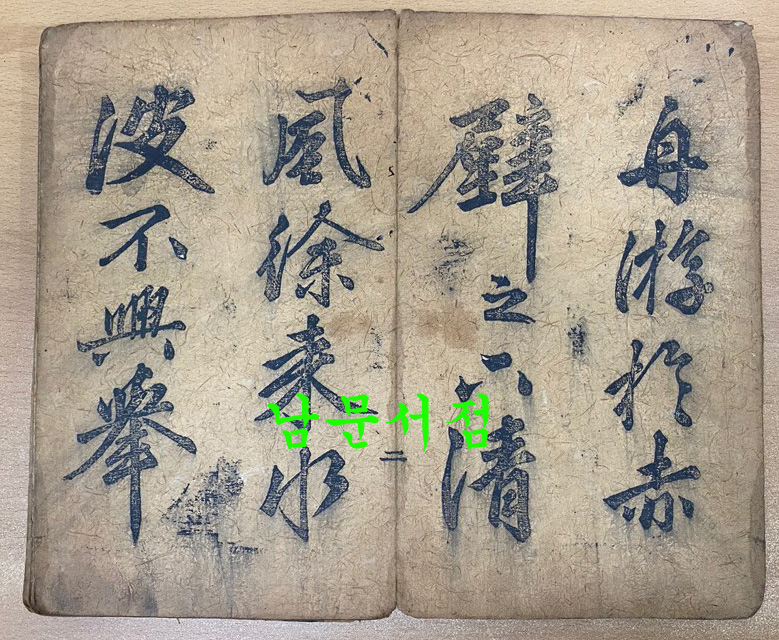 舟游於赤
壁之下清
風徐来水
波不興舉
二
남문서점